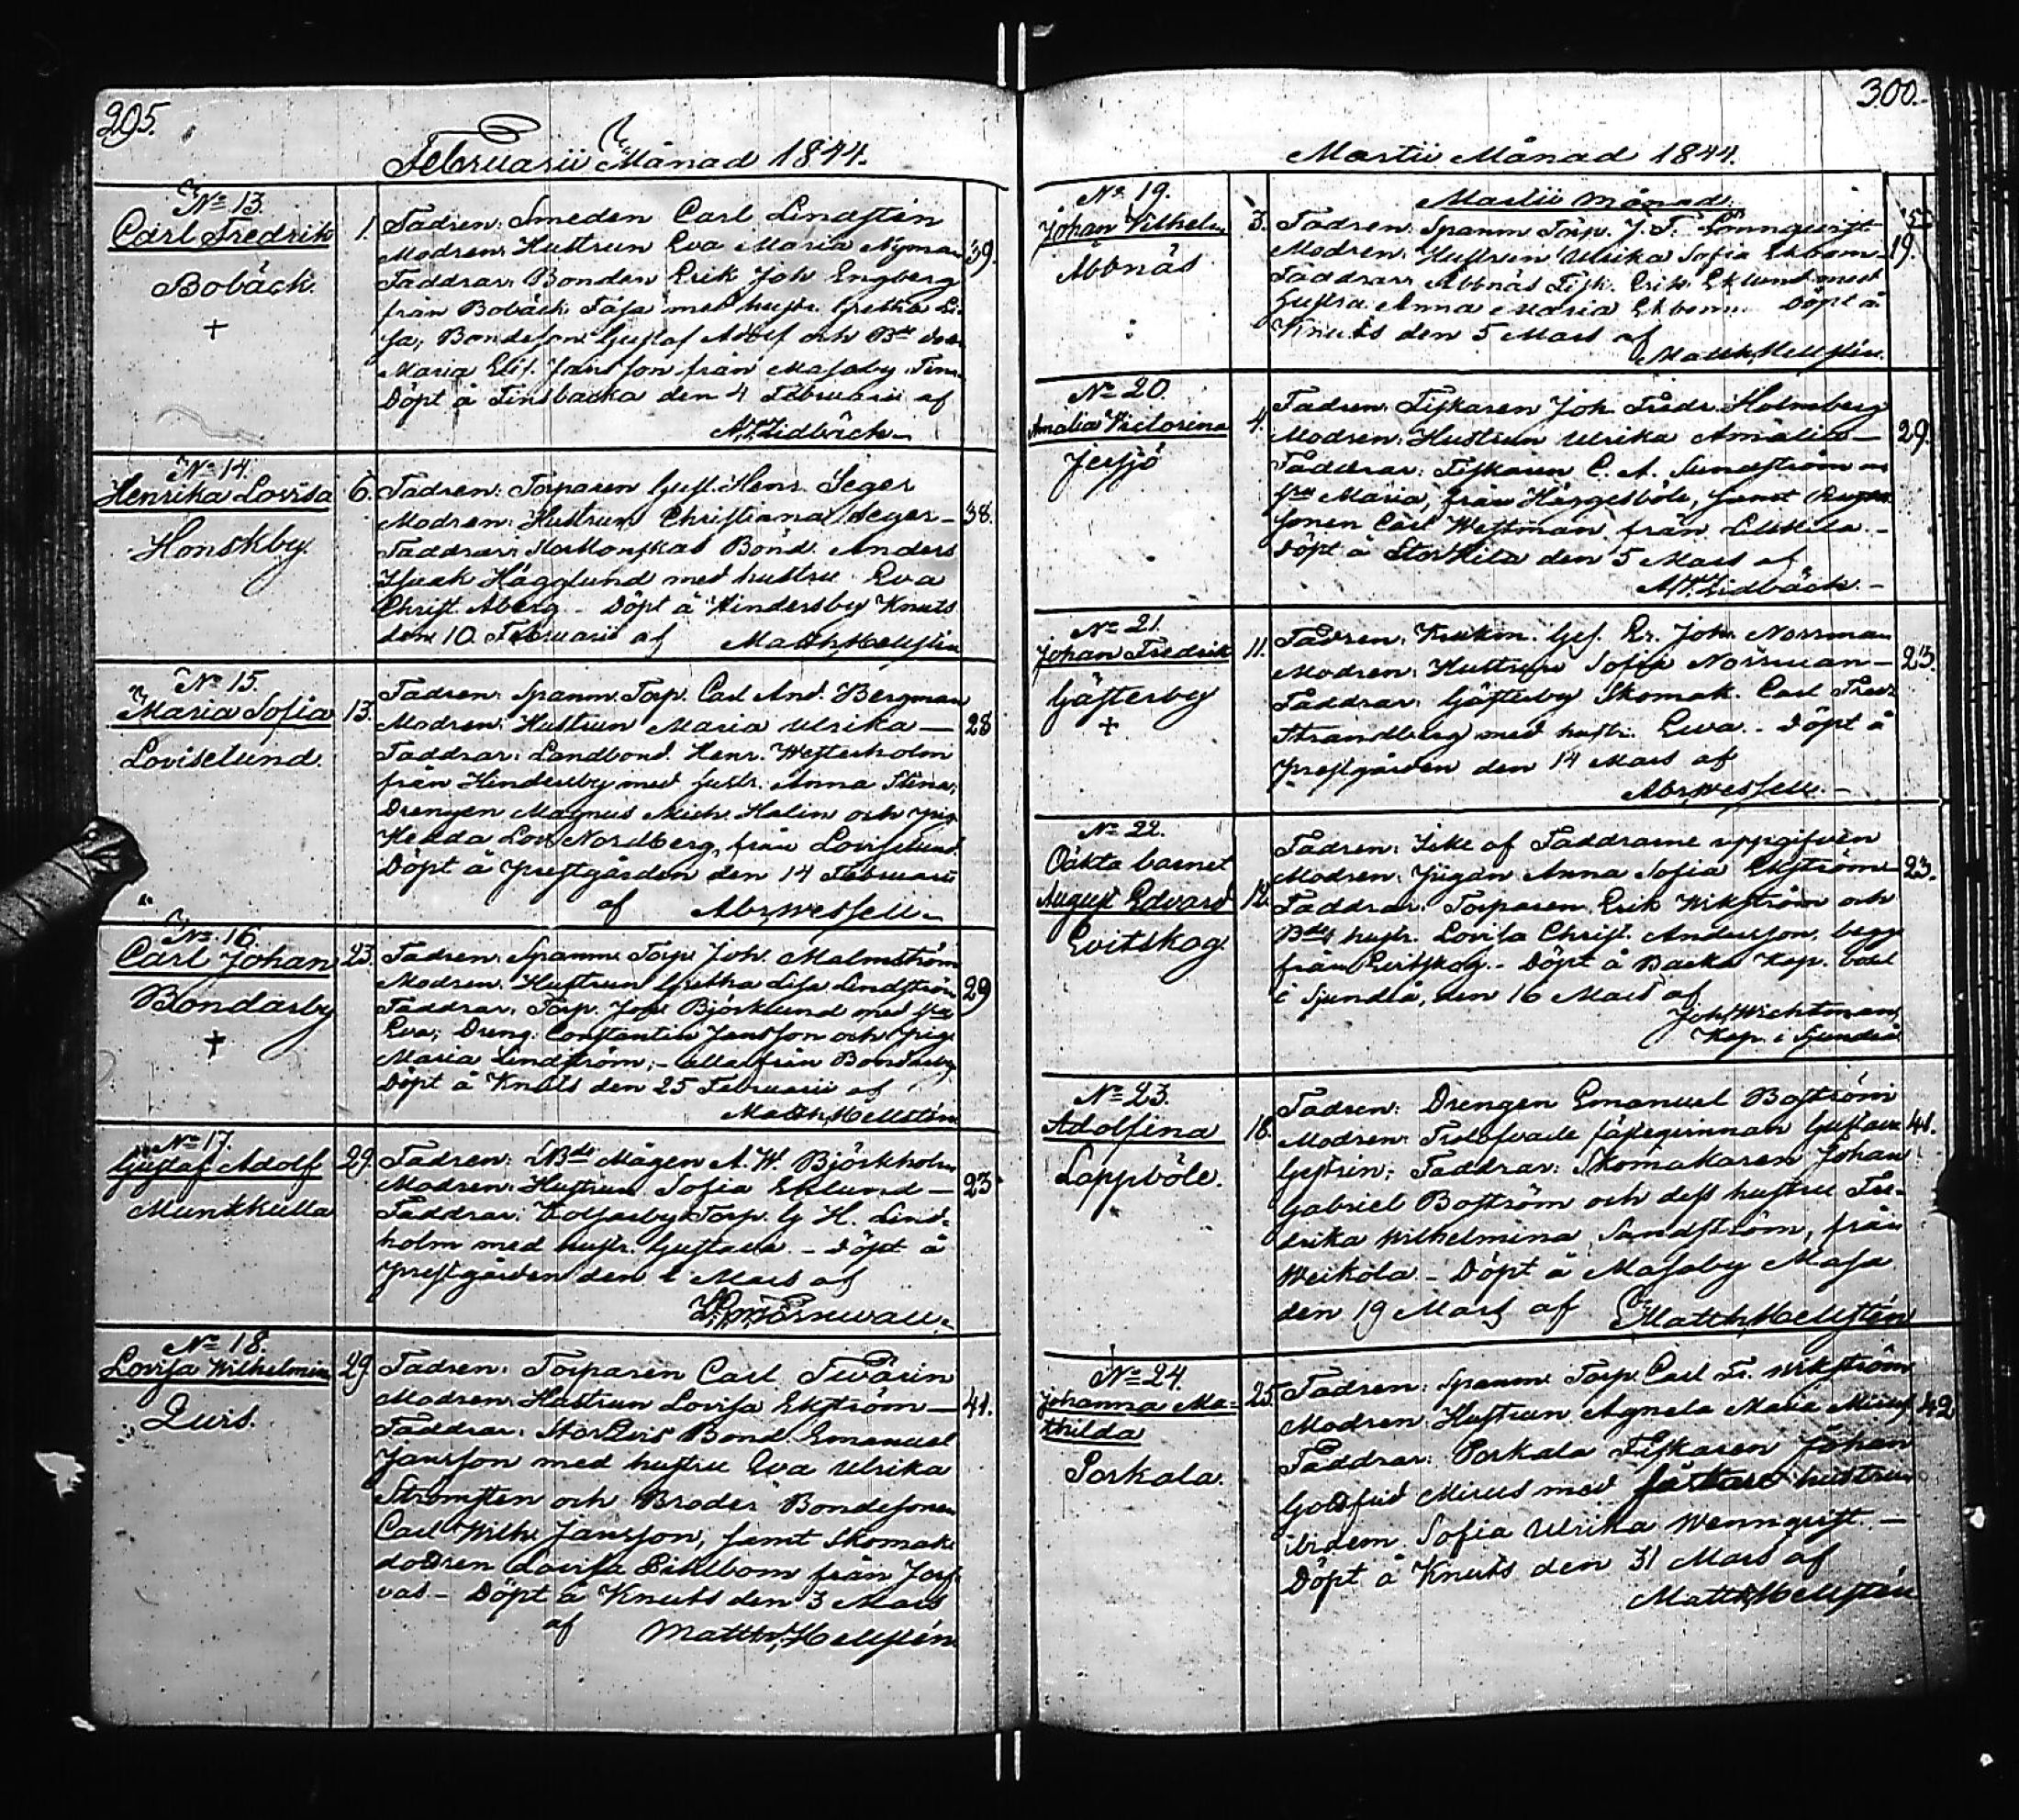 295.
Februarii Månad 1844.
No 13.
Carl Fredrik
Bobäck.
+
1.
Fadren: Smeden Carl Lindstén
Modren: Hustrun Eva Maria Nyman
39.
Faddrar: Bonden Erik Joh Engberg
från Bobäck Fåfa med hustr. Gretha Li-
sa, Bondeson Gustaf Adolf och Bde dott.
Maria Elis. Jansson från Masaby
Döpt å Finsbacka den 4 Februarii af
A.T. Lidbäck
No 14.
Henrika Lovisa
Honskby.
6.
Fadren: Torparen Gust. Henr. Seger
Modren: Hustrun Christiana Seger
38.
Faddrar: Bond. Anders
Isaak Hägglund med hustru Eva
Christ. Åberg - Döpt å Hindersby Knuts
den 10 Februarii af Matth. Hellstén
No 15.
Maria Sofia
Loviselund.
13.
Fadren: Spanm. Torp. Carl And. Bergman
Modren: Hustrun Maria Ulrika
28
Faddrar: Landbond. Henr. Westerholm
från Hindersby med hustr. Anna Stina,
Drengen Magnus Mich. Halin och pig.
Hedda Lov. Nordberg, från Loviselund.
Döpt å Prestgården den 14 Februarii
af Abr. Wessell
No 16.
Carl Johan
Bondarby
+
23.
Fadren: Spanm. Torp. Joh. Malmström
Modren: Hustrun Gretha Lisa Lindström
29
Faddrar: Torp. Joh. Björklund med hu
Eva; Dreng. Constantin Jansson och pig.
Maria Lindström; - alla från Bondarby
Döpt å Knuts den 25 Februarii af
Matth. Hellstén
No 17.
Gustaf Adolf
Munkkulla
29.
Fadren: Bde Mågen A. W. Björkholm
Modren: Hustrun Sofia Eklund
23.
Faddrar: Kolsarby Torp. G. H. Lind-
holm med hustr. Gustava. - Döpt å
Prestgården den 1 Mars af
No 18.
Lovisa Wilhelmin
Quis.
29.
Fadren: Torparen Carl Tvärin
Modren: Hustrun Lovisa Ekström
41.
Faddrar: Bond. Emanuel
Jansson med hustru Eva Ulrika
Strömsten och Broder Bondesonen
Carl Wilh. Jansson, samt Skomak.
dottren Lovisa från Jorf-
vas. - Döpt å Knuts den 3 Mars
af Matth. Hellstén
300.
Martii Månad 1844.
No 19.
Johan Vilhelm
Abbnäs
3.
Martii Månad.
Fadren: Spanm. Torp. J. F. Lönnquist
19.
Modren: Hustrun Ulrika Sofia Ekbom
Faddrar: Abbnäs Fisk. Erik Eklund med
hustru Anna Maria Ekbom. Döpt å
Knuts den 5 Mars af
Matth. Hellstén
No 20.
Amalia Victorina
4.
Fadren: Fiskaren Joh. Fredr. Holmberg
Modren: Hustrun Ulrika Amalia
29.
Faddrar: Fiskaren C. A. Sundström
Maria, från Härgesböle, samt
sonen Carl Westman från Lillkila.
Döpt å Storkila den 5 Mars af
A.T. Lidbäck
No 21.
Johan Fredrik
Gästerby
+
11.
Fadren: Gef. Er. Joh. Norrman
Modren: Hustrun Sofia Norrman
23.
Faddrar: Gästerby Skomak. Carl Fredr
Strandberg med hustr. Eva. - Döpt å
Prestgården den 14 Mars af
Abr. Wessell.
No 22.
Oäkta barnet
August Edvard
Evitskog.
12.
Fadren: Icke af Faddrarne uppgifven
Modren: Pigan Anna Sofia Ekström
23.
Faddrar: Torparen Erik Wikström och
Bdes hustr. Lovisa Christ. Andersson, begge
från Evitskog. - Döpt å Backa Kap. bol
i Sjundeå, den 16 Mars af
Joh. Wichtman,
Kap. i Sjundeå
No 23.
Adolfina
Lappböle.
18.
Fadren: Drengen Emanuel Boström
Modren: Trolofvade fästeqvinnan Gustava
41.
Gestrin; Faddrar: Skomakaren Johan
Gabriel Boström och dess hustru Fre-
drika Wilhelmina Sandström, från
Weikola. - Döpt å Masaby Masa
den 19 Mars af Matth. Hellstén
No 24.
Johanna Ma-
thilda
Porkala.
25.
Fadren: Spanm. Torp. Carl Fr. Wikström
Modren: Hustrun Agneta Maria Mireus
42
Faddrar: Porkala Fiskaren Johan
Godfrid Mireus med hustrun
ibidem Sofia Ulrika Wennquist. -
Döpt å Knuts den 31 Mars af
Matth. Hellstén